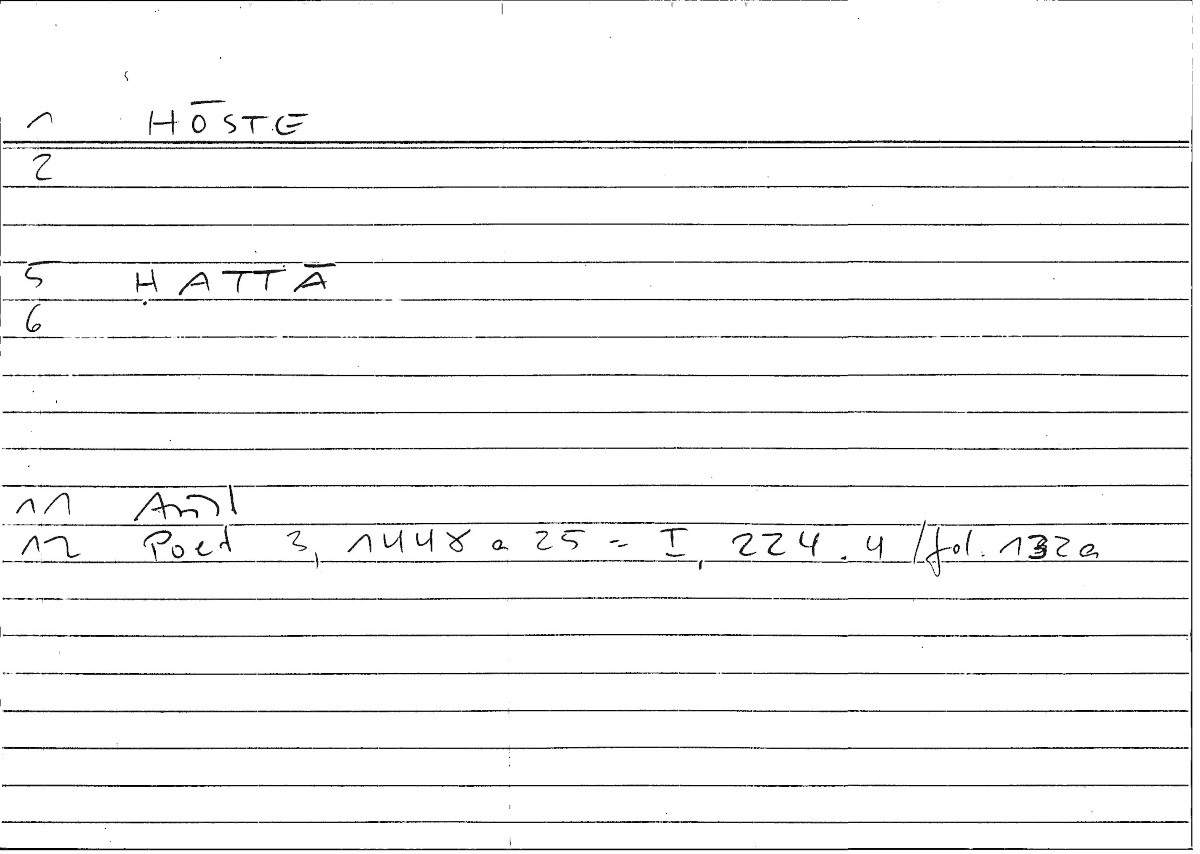 1 HŌSTE
2
5 ḤATTĀ
6
11 Arist
12 Poet 3, 1448 a 25 = I, 224.4 / fol. 132a